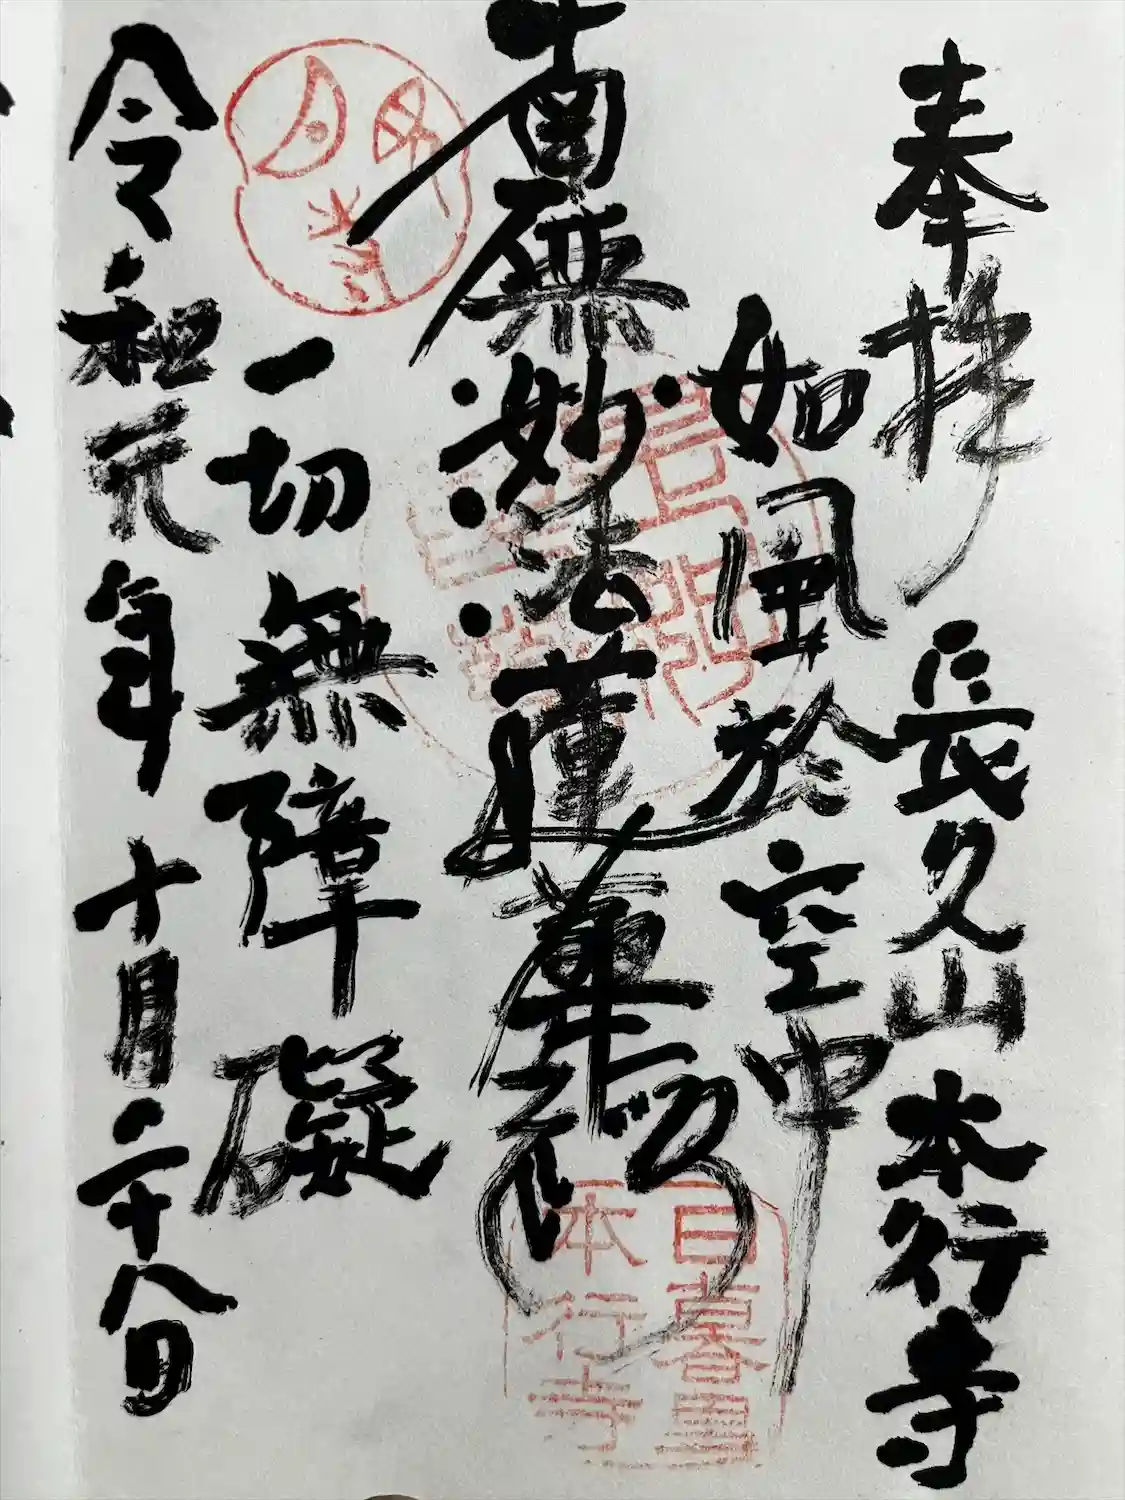 奉拝 長久山 本行寺
如風於空中
南無妙法蓮華経
一切無障礙
令和元年 十月二十八日
日暮里
本行寺